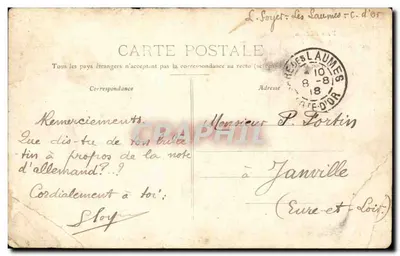 L. Goyer - Les Laumes - C. d'Or
CARTE POSTALE
Tous les pays étrangers n'acceptent pas la correspondance au recto
Correspondance
Adresse
GARE DES LAUMES
10
8 -8
18
COTE-D'OR
Remerciements.
Que dis-tu de ton
tin à propos de la note
d'allemand? ?
Cordialement à toi:
Monsieur P. Fortin
à Janville
(Eure et Loir)
CARTE PHILA